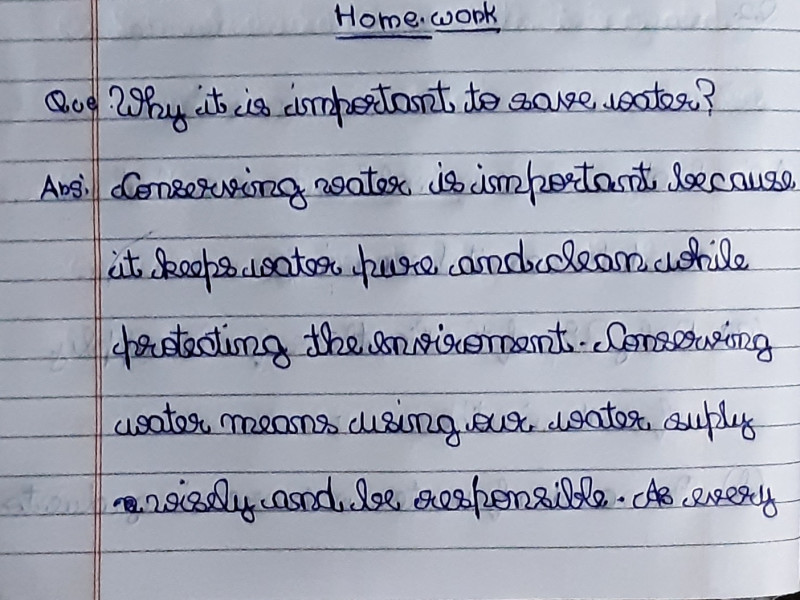 Home.work
Que Why it is important to save water?
Ans. Conserving water is important because
it keeps water pure and clean while
protecting the enviroment. Conserving
water means using our water suply
wisely and be responsible. As every